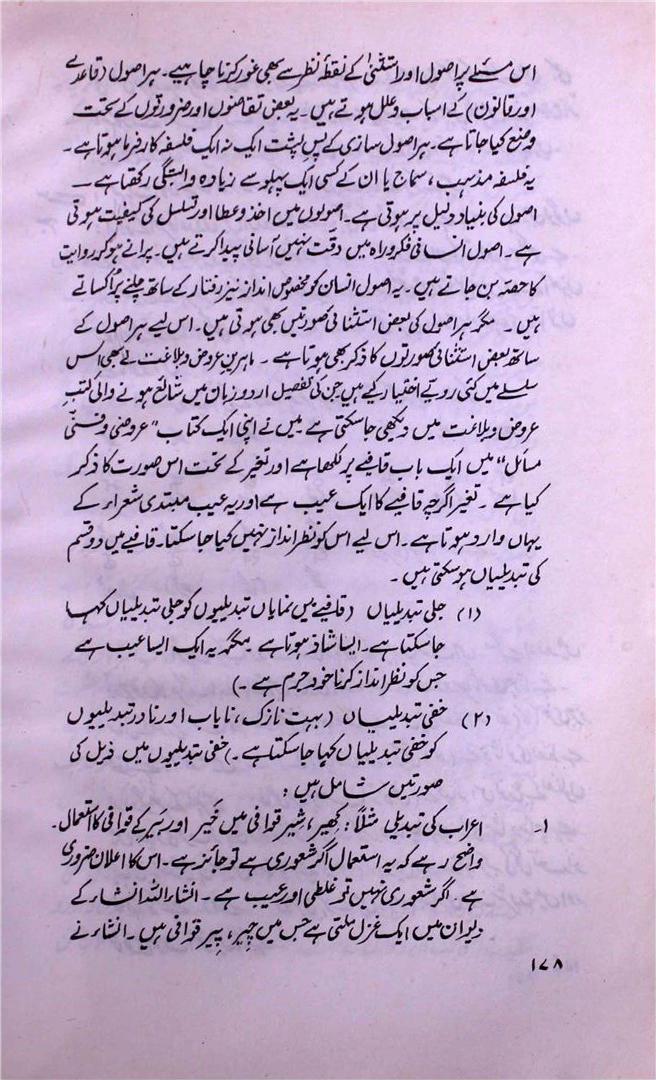 اس مسئلے پر اصول اور استثنیٰ کے نقطۂ نظر سے بھی غور کرنا چاہیے۔ ہر اصول (قاعدے
اور قانون) کے اسباب و علل ہوتے ہیں۔ یہ بعض تقاضوں اور ضرورتوں کے تحت
وضع کیا جاتا ہے۔ ہر اصول سازی کے پسِ پشت ایک نہ ایک فلسفہ کارفرما ہوتا ہے۔
یہ فلسفہ مذہب، سماج یا ان کے کسی ایک پہلو سے زیادہ وابستگی رکھتا ہے۔
اصول کی بنیاد دلیل پر ہوتی ہے۔ اصولوں میں اخذ و عطا اور تسلسل کی کیفیت ہوتی
ہے۔ اصول انسانی فکر و راہ میں دقّت نہیں آسانی پیدا کرتے ہیں۔ پرانے ہو کر روایت
کا حصّہ بن جاتے ہیں۔ یہ اصول انسان کو مخصوص انداز نیز رفتار کے ساتھ چلنے پر اُکساتے
ہیں۔ مگر ہر اصول کی بعض استثنائی صورتیں بھی ہوتی ہیں۔ اس لیے ہر اصول کے
ساتھ بعض استثنائی صورتوں کا ذکر بھی ہوتا ہے۔ ماہرینِ عروض و بلاغت نے بھی اس
سلسلے میں کئی رویّے اختیار کیے ہیں جن کی تفصیل اردو زبان میں شائع ہونے والی کتبِ
عروض و بلاغت میں دیکھی جا سکتی ہے میں نے اپنی ایک کتاب "عروضی و فنّی
مسائل" میں ایک باب قافیے پر لکھا ہے اور تغیر کے تحت اس صورت کا ذکر
کیا ہے۔ تغیر اگرچہ قافیے کا ایک عیب ہے اور یہ عیب مبتدی شعراء کے
یہاں وارد ہوتا ہے۔ اس لیے اس کو نظر انداز نہیں کیا جا سکتا۔ قافیے میں دو قسم
کی تبدیلیاں ہو سکتی ہیں۔
(۱) جلی تبدیلیاں (قافیے میں نمایاں تبدیلیوں کو جلی تبدیلیاں کہا
جا سکتا ہے۔ ایسا شاذ ہوتا ہے مگر یہ ایک ایسا عیب ہے
جس کو نظر انداز کرنا خود جرم ہے۔)
(۲) خفی تبدیلیاں (بہت نازک، نایاب اور نادر تبدیلیوں
کو خفی تبدیلیاں کہا جا سکتا ہے۔) خفی تبدیلیوں میں ذیل کی
صورتیں شامل ہیں:
۱۔ اعراب کی تبدیلی مثلاً: کھیر، شِیر قوافی میں خَیر اور سَیر کے قوافی کا استعمال۔
واضح رہے کہ یہ استعمال اگر شعوری ہے تو جائز ہے۔ اس کا اعلان ضروری
ہے۔ اگر شعوری نہیں تو غلطی اور عیب ہے۔ انشاء اللہ انشاء کے
دیوان میں ایک غزل ملتی ہے جس میں چِیر، پِیر قوافی ہیں۔ انشاء نے
۱۷۸